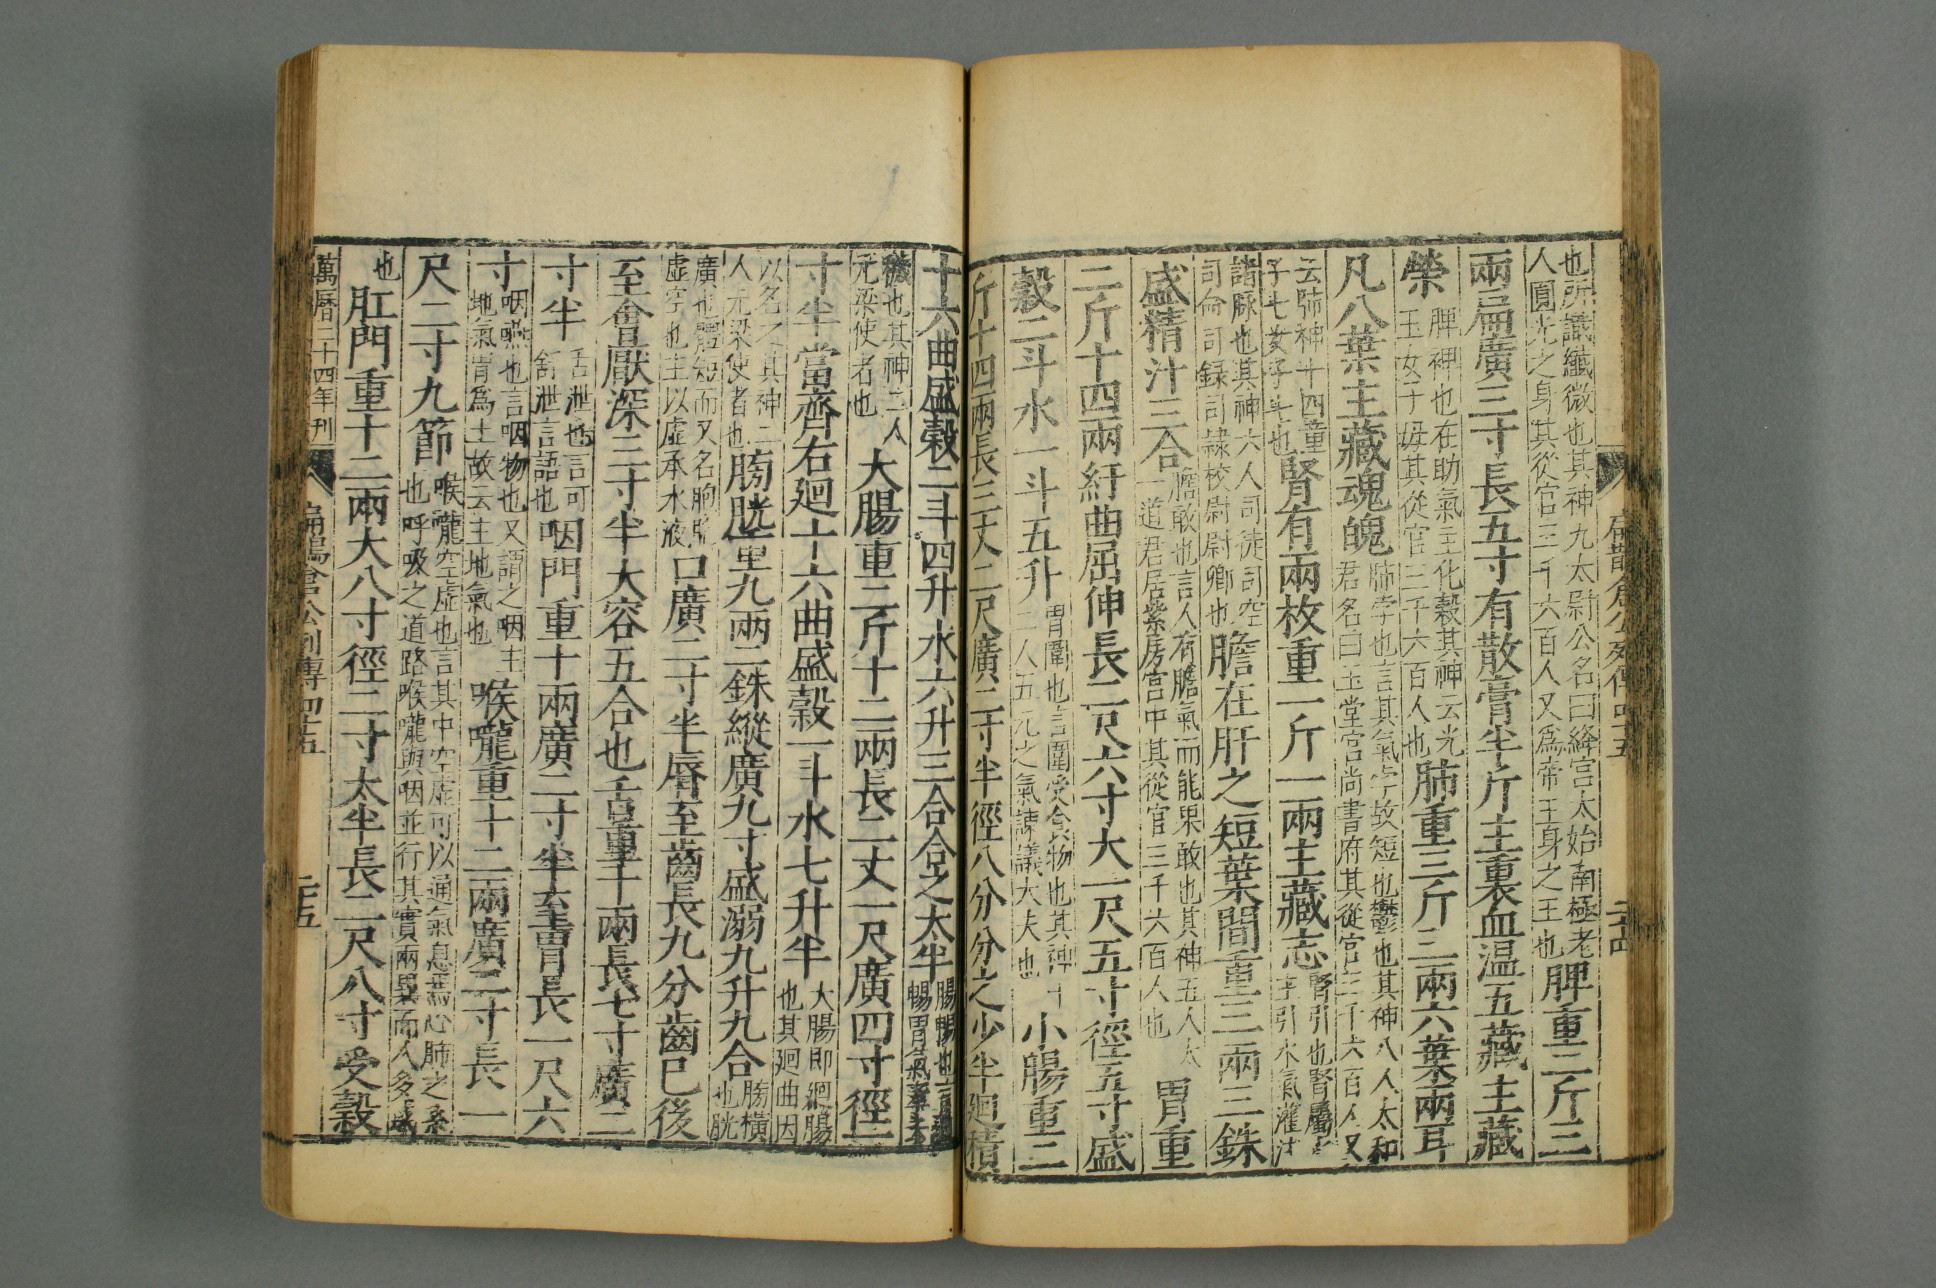 也所識纖微也其神九太尉公名曰絳宮太始南極老
人圓光之身其從官三千六百人又爲帝王身之王也
脾重二斤三
兩扁廣三寸長五寸有散膏半斤主裹血温五藏主藏
榮
脾裨也在助氣主化穀其神云光
玉女子母其從官三千六百人也
肺重三斤三兩六葉兩耳
凡八葉主藏魂魄
肺孛也言其氣孛故短也鬱也其神八人太和
君名曰玉堂宮尚書府其從官三千六百人又
云肺神十四童
子七女子七也
腎有兩枚重一斤一兩主藏志
腎引也腎屬水
諸脉也其神六人司徒司空
司命司録司隷校尉尉卿也
膽在肝之短葉間重三兩三銖
盛精汁三合
膽敢也言人有膽氣而能果敢也其神五人太
一道君居紫房宮中其從官三千六百人也
胃重
二斤十四兩紆曲屈伸長二尺六寸大一尺五寸徑五寸盛
穀二斗水一斗五升
胃圍也言圍受食物也其神十
二人五元之氣諫議大夫也
小腸重二
斤十四兩長三丈二尺廣二寸半徑八分分之少半廻積
扁鵲倉公列傳四十五
二十四
十六曲盛穀二斗四升水六升三合合之太半
腸暢也言
暢胃氣
穢也其神二人
元梁使者也
大腸重三斤十二兩長二丈一尺廣四寸徑一
寸半當齊右廻十六曲盛穀一斗水七升半
大腸即廻腸
也其廻曲因
以名之其神二
人元梁使者也
膀胱重九兩二銖縱廣九寸盛溺九升九合
膀橫
也胱
廣也體短而又名胞
虛空也主以虛承水液
口廣二寸半脣至齒長九分齒已後
至會厭深三寸半大容五合也舌重十兩長七寸廣二
寸半
舌泄也言可
舒泄言語也
咽門重十兩廣二寸半至胃長一尺六
寸
咽嚥也言咽物也又謂之咽主
地氣胃爲土故云主地氣也
喉嚨重十二兩廣二寸長一
尺二寸九節
喉嚨空虛也言其中空虛可以通氣息焉心肺之系
也呼吸之道路喉嚨與咽並行其實兩異而人多惑
也
肛門重十二兩大八寸徑二寸太半長二尺八寸受穀
萬曆二十四年刊
扁鵲倉公列傳四十五
二十五